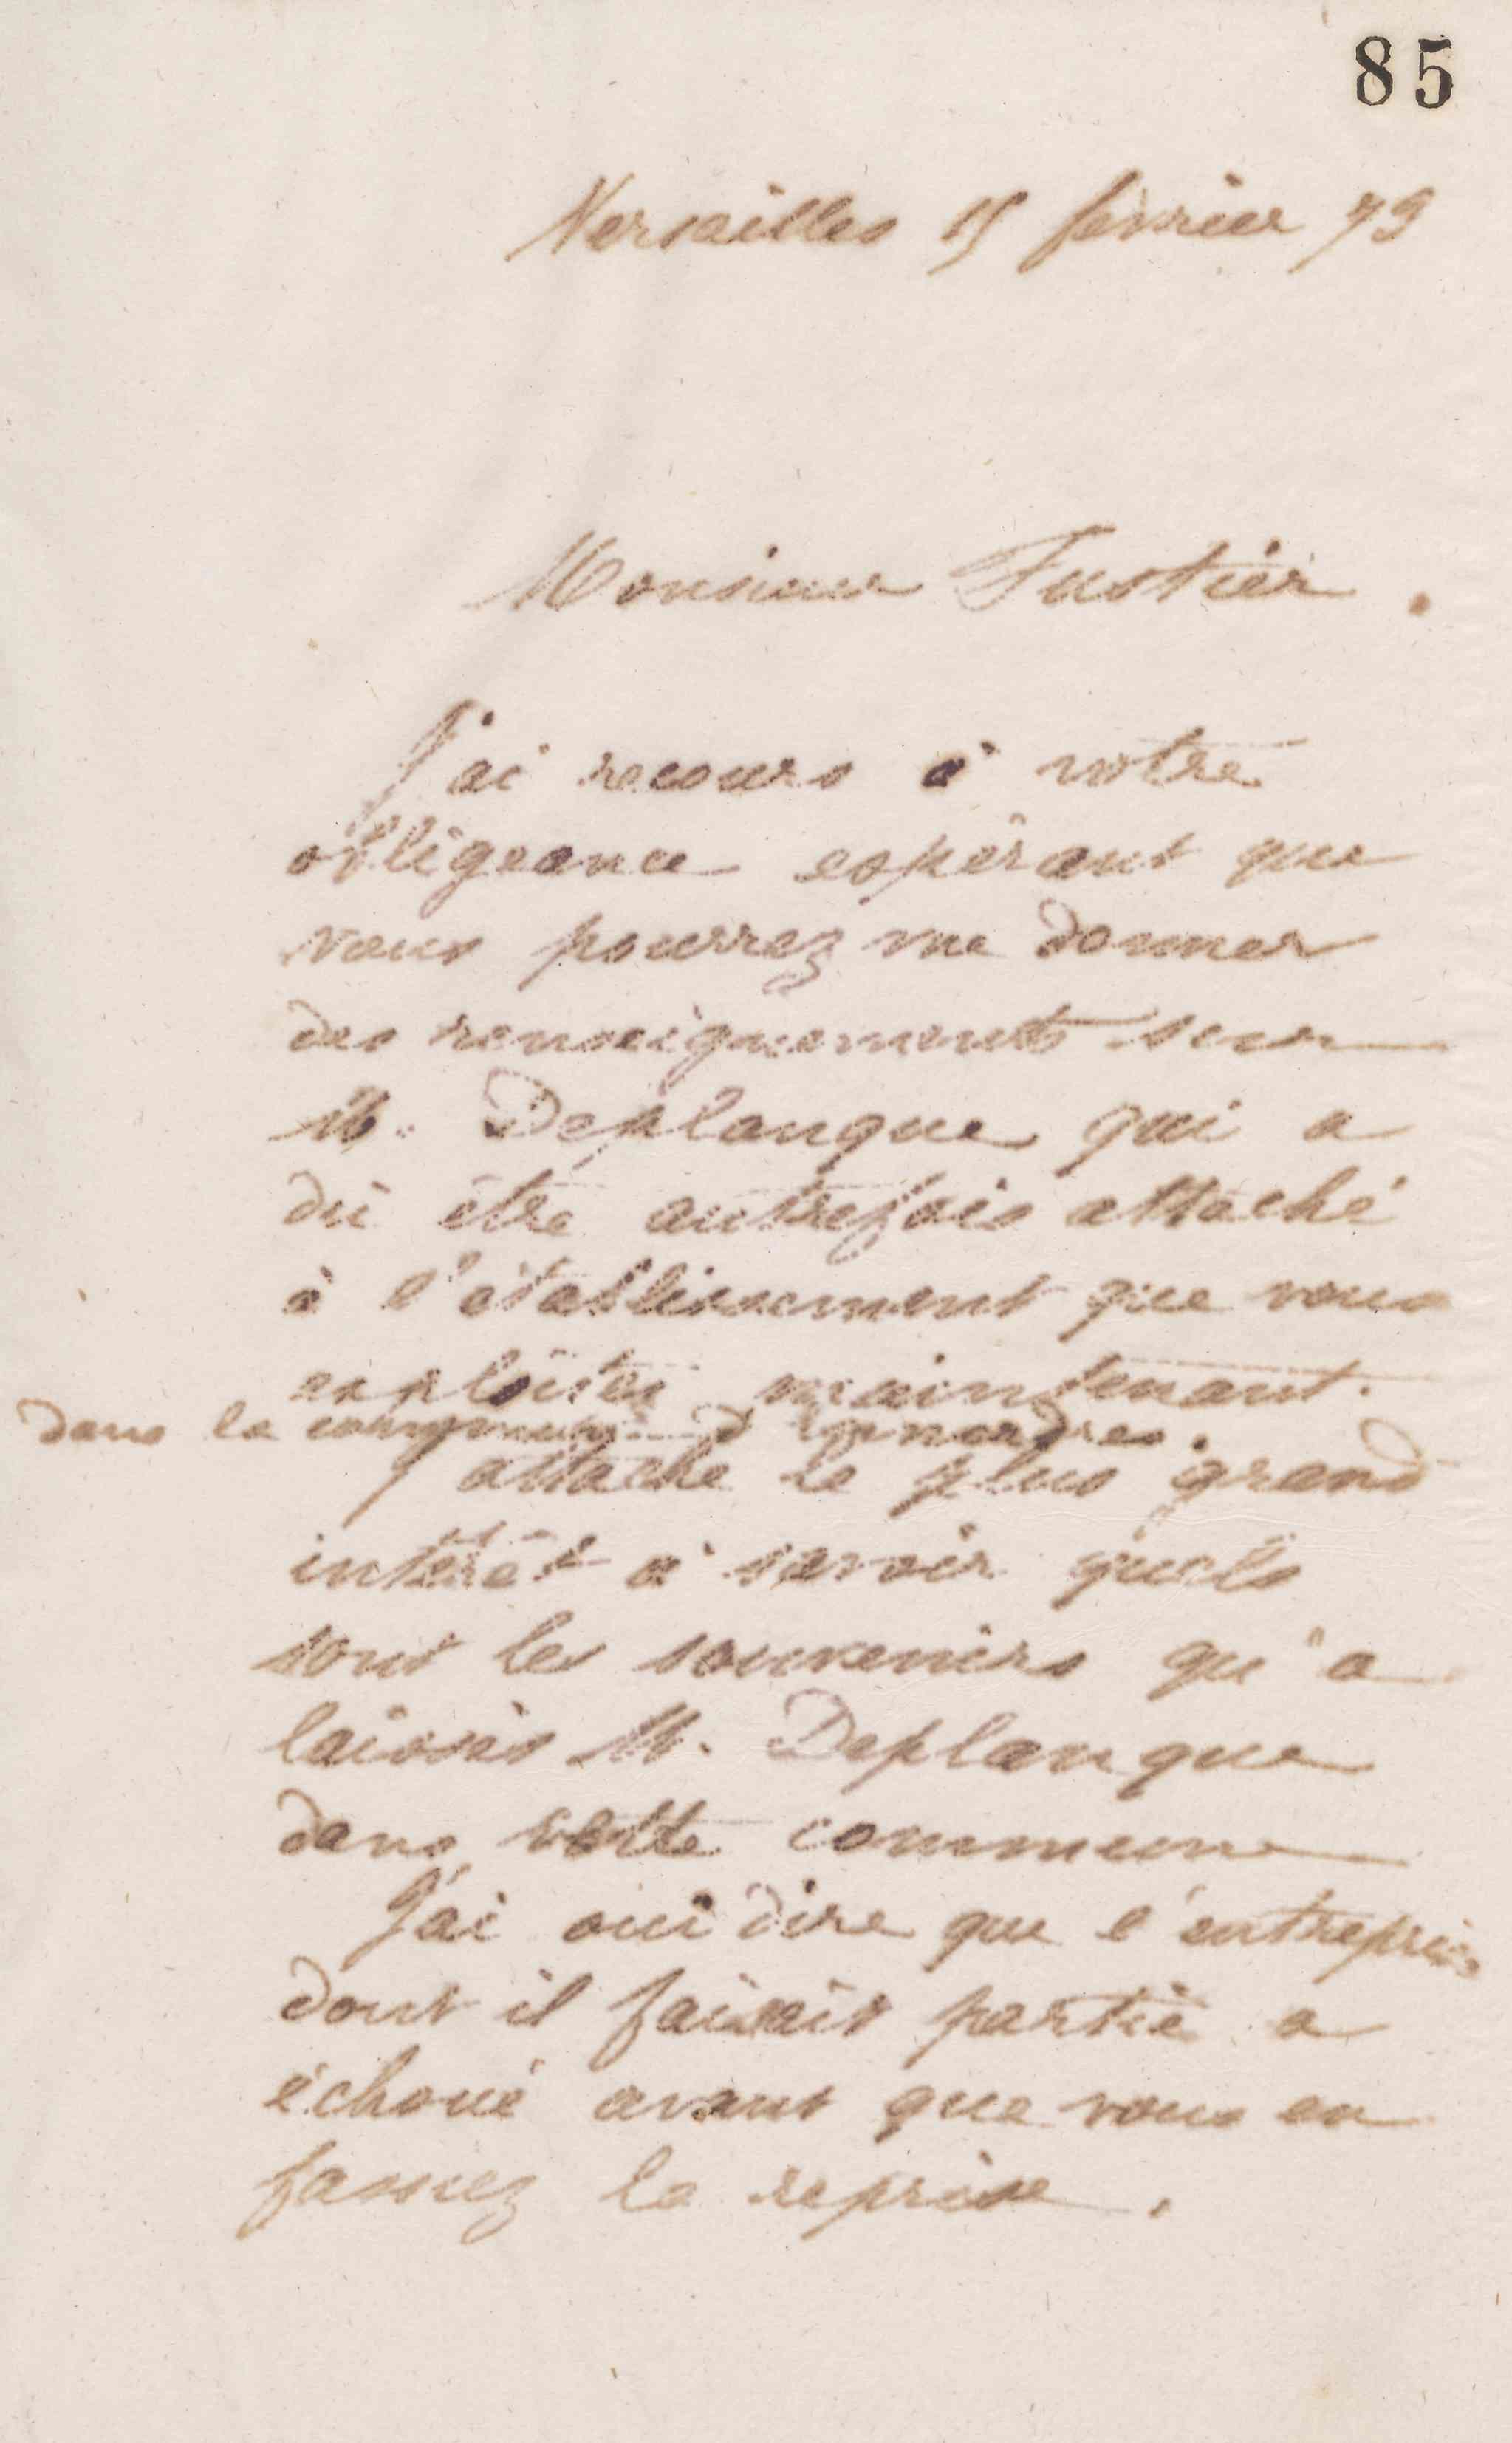 85
Versailles 15 février 79
Monsieur Fustier.
J'ai recours à votre
obligeance espérant que
vous pourrez me donner
des renseignements sur
M. Deplanque qui a
dû être autrefois attaché
à l'établissement que vous
exploitez maintenant.
dans la commune d'
J'attache le plus grand
intérêt à savoir quels
sont les souvenirs qu'a
laissés M. Deplanque
dans cette commune
J'ai oui dire que l'entreprise
dont il faisait partie a
échoué avant que vous en
fassiez la reprise.